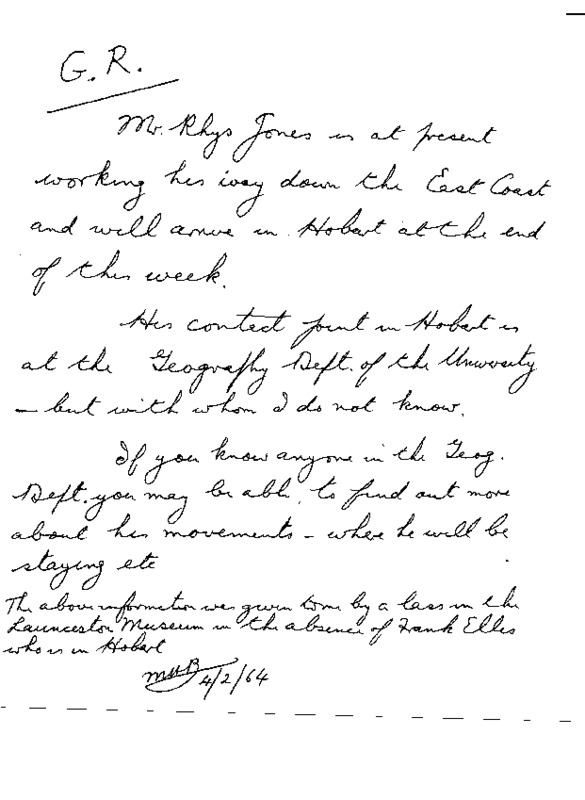 G.R.
Mr. Rhys Jones is at present
working his way down the East Coast
and will arrive in Hobart at the end
of this week.
His contact point in Hobart is
at the Geography Dept. of the University
— but with whom I do not know.
If you know anyone in the Geog.
Dept. you may be able to find out more
about his movements - where he will be
staying etc
The above information was given to me by a lass in the
Launceston Museum in the absence of Frank Ellis
who is in Hobart
MHB 4/2/64